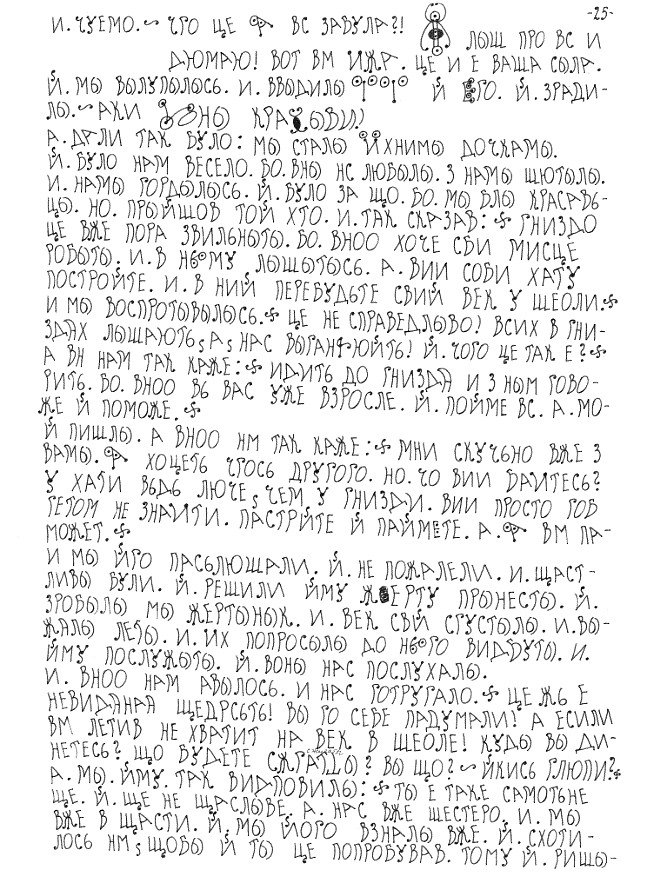 -25-
И. ЧУЕМО. ~ ЧТО ЦЕ Я ВС ЗАБУЛА?!
ЛЫШ ПРО ВС И
ДЮМАЮ! ВОТ ВМ ИЖА. ЦЕ И Е ВАША СЫЛА.
Й. МЫ ВЫЛУПЫЛОСЬ. И. ВВОДИЛЫ Й ЕГО. Й. ЗРАДИ-
ЛЫ. ~ АКИ КРАСЫВИ!
А. ДАЛИ ТАК БУЛО: МЫ СТАЛЫ ЙХНИМЫ ДОЧКАМЫ.
Й. БУЛО НАМ ВЕСЕЛО. БО. ВНЫ НС ЛЮБЫЛЫ. З НАМЫ ШЮТЫЛЫ.
И. НАМЫ ГОРДЫЛЫСЬ. Й. БУЛО ЗА ЩО. БО. МЫ БЛЫ КРАСАВЬ-
ЦЫ. НО. ПРЫЙШОВ ТОЙ ХТО. И. ТАК СКАЗАВ: ГНИЗДО
ЦЕ ВЖЕ ПОРА ЗВИЛЬНЫТЫ. БО. ВНОО ХОЧЕ СБИ МИСЦЕ
РОБЫТЫ. И. В НЬОМУ ЛЫШЫТЫСЬ. А. ВИИ СОБИ ХАТУ
ПОСТРОЙТЕ. И. В НИЙ ПЕРЕБУДЬТЕ СВИЙ ВЕК У ШЕОЛИ.
И МЫ ВОСПРОТЫВЫЛОСЬ. ЦЕ НЕ СПРАВЕДЛЫВО! ВСИХ В ГНИ-
ЗДАХ ЛЫШАЮТЬ, А, НАС ВЫГАНЮЙТЬ! Й. ЧОГО ЦЕ ТАК Е?
А ВН НАМ ТАК КАЖЕ: ИДИТЬ ДО ГНИЗДА И З НЫМ ГОВО-
РИТЬ. БО. ВНОО ВЬ ВАС УЖЕ ВЗРОСЛЕ. Й. ПОЙМЕ ВС. А. МО-
ЖЕ Й ПОМОЖЕ.
Й ПИШЛЫ. А ВНОО НМ ТАК КАЖЕ: МНИ СКУЧЬНО ВЖЕ З
ВАМЫ. Я ХОЦЕТЬ ЧТОСЬ ДРУГОГО. НО. ЧО ВИИ БАИТЕСЬ?
У ХАТИ ВЬДЬ ЛЮЧЕ, ЧЕМ У ГНИЗДИ. ВИИ ПРОСТО ТОВ
ГЕТОМ НЕ ЗНАИТИ. ПАСТРИТЕ Й ПАЙМЕТЕ. А. Я ВМ ПА-
МОЖЕТ.
И МЫ ЙГО ПАСЬЛЮШАЛИ. Й. НЕ ПОЖАЛЕЛИ. И. ЩАСТ-
ЛИВЫ БУЛИ. Й. РЕШИЛИ ЙМУ ЖЕРТУ ПРЫНЕСТЫ. Й.
ЗРОБЫЛЫ МЫ ЖЕРТЫНЫК. И. ВЕК СВІЙ СГУСТЫЛЫ. И. ВЫ-
ЖАЛЫ ЛЕТЫ. И. ИХ ПОПРОСЫЛЫ ДО НЬОГО ВИДБУТЫ. И.
ЙМУ ПОСЛУЖЫТЫ. Й. ВОНЫ НАС ПОСЛУХАЛЫ.
И. ВНОО НАМ АВЫЛОСЬ. И НАС ГОТРУГАЛО. ЦЕ ЖЬ Е
НЕВИДАНАЯ ЩЕДРСЬТЬ! ВЫ ГО СЕБЕ ПАДУМАЛИ! А ЕСИЛИ
ВМ ЛЕТИВ НЕ ХВАТИТ НА ВЕК В ШЕОЛЕ! КУДЫ ВЫ ДИ-
НЕТЕСЬ? ЩО БУДЕТЕ СЖГАТЦЫ? ВЫ ЩО? ~ ЙКИСЬ ГЛЮПИ?
А. МЫ. ЙМУ. ТАК ВИДПОВИЛЫ: ТЫ Е ТАКЕ САМОТЬНЕ
ЩЕ. Й. ЩЕ НЕ ЩАСЛЫВЕ. А. НАС ВЖЕ ШЕСТЕРО. И. МЫ
ВЖЕ В ЩАСТИ. Й, МЫ ЙОГО ВЗНАЛЫ ВЖЕ. Й. СХОТИ-
ЛОСЬ НМ, ЩОБЫ Й ТЫ ЦЕ ПОПРОБУВАВ. ТОМУ Й. РИШЫ-